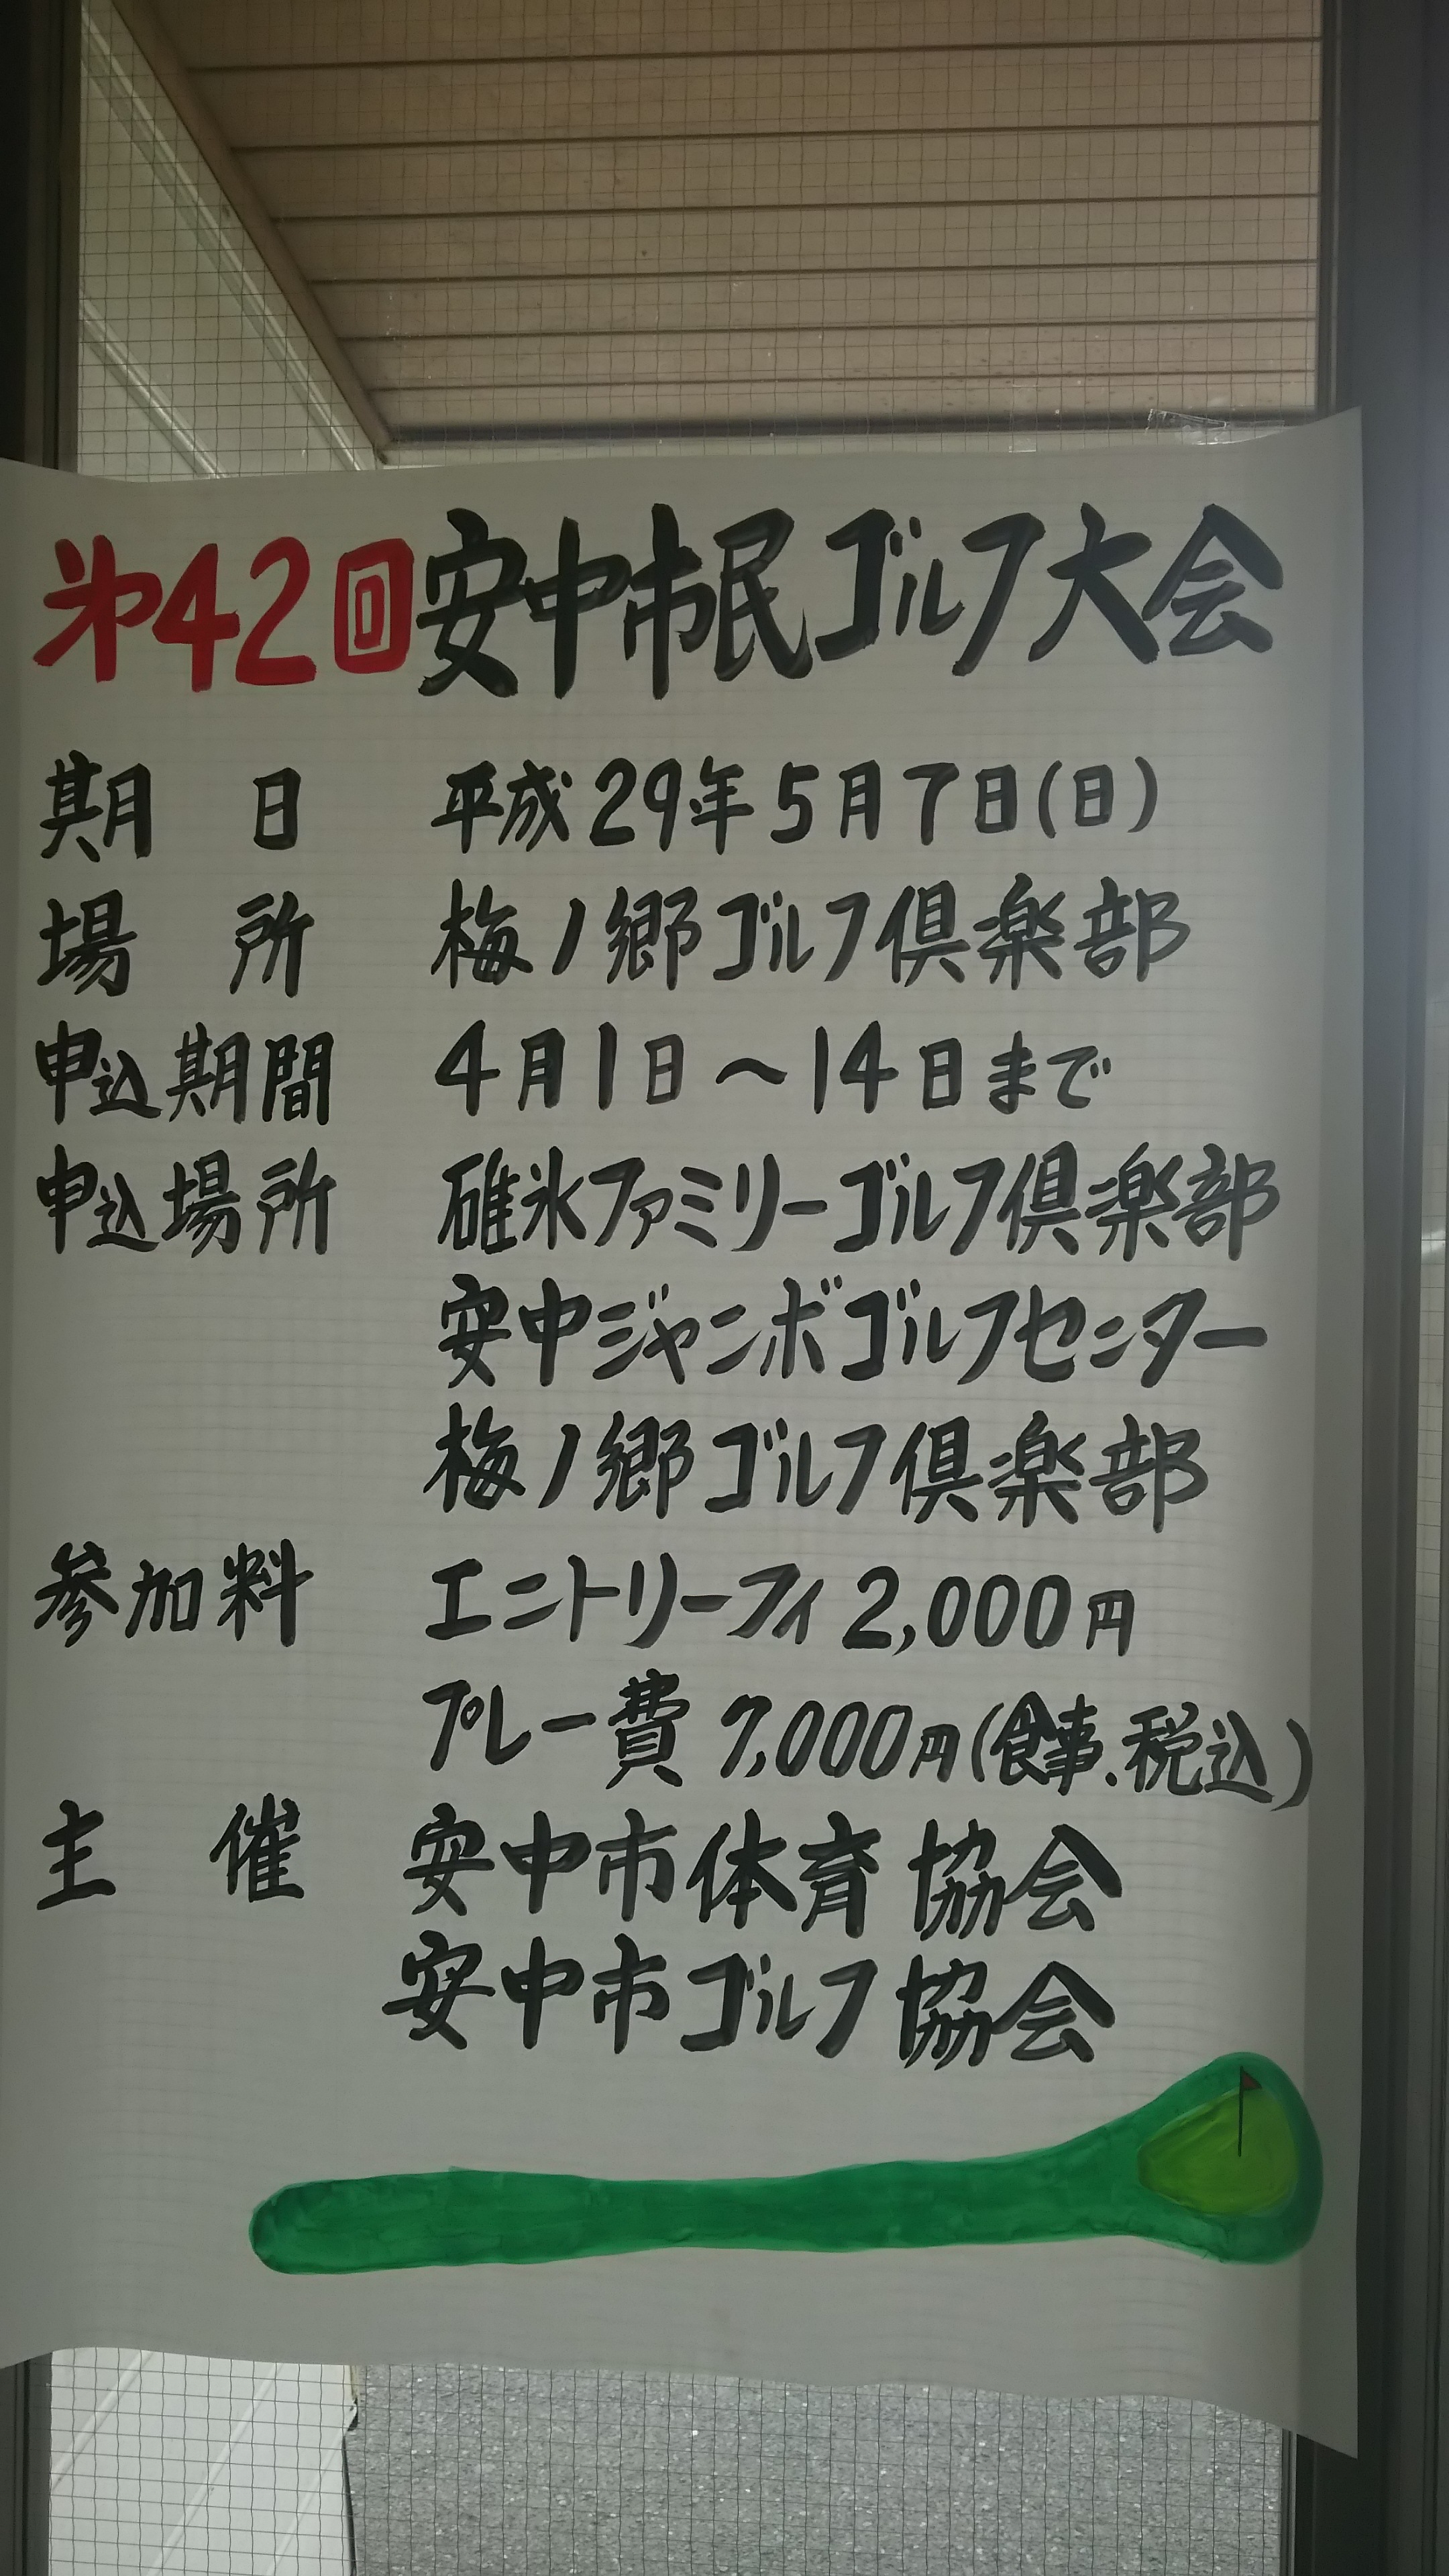 第42回安中市民ゴルフ大会
期日 平成29年5月7日(日)
場所 梅ノ郷ゴルフ倶楽部
申込期間 4月1日〜14日まで
申込場所 碓氷ファミリーゴルフ倶楽部
安中ジャンボゴルフセンター
梅ノ郷ゴルフ倶楽部
参加料 エントリーフィ2,000円
プレー費 7,000円(食事、税込)
主催 安中市体育協会
安中市ゴルフ協会